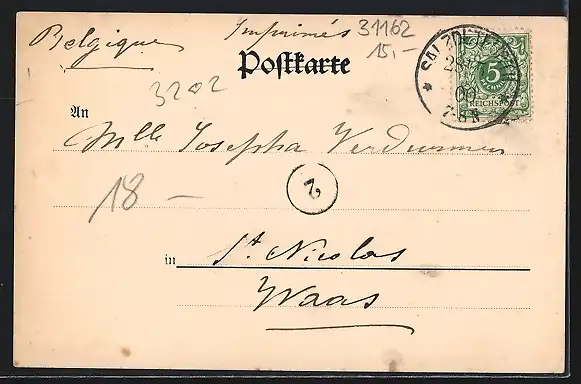 Belgique Imprimés 31162
15,-
Postkarte
5
REICHSPOST
00
7-8 N
3202
An Mlle Josepha Verdurmen
2
18 -
in St Nicolas
Waas